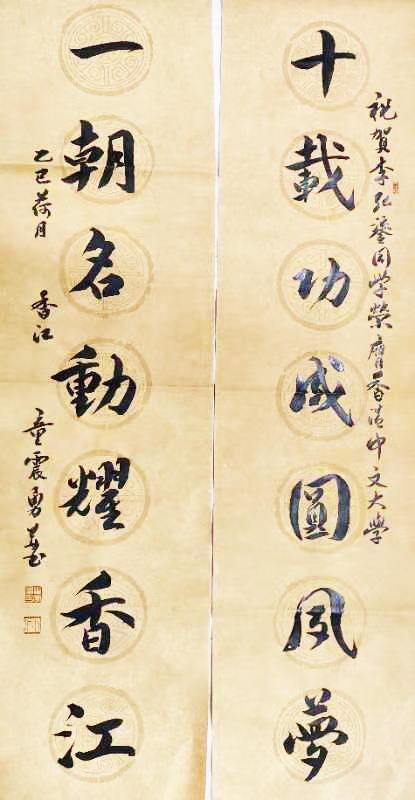 祝賀李弘鎏同学榮膺香港中文大学
十載功成圓夙夢
一朝名動耀香江
乙巳荷月
香江
童震勇書